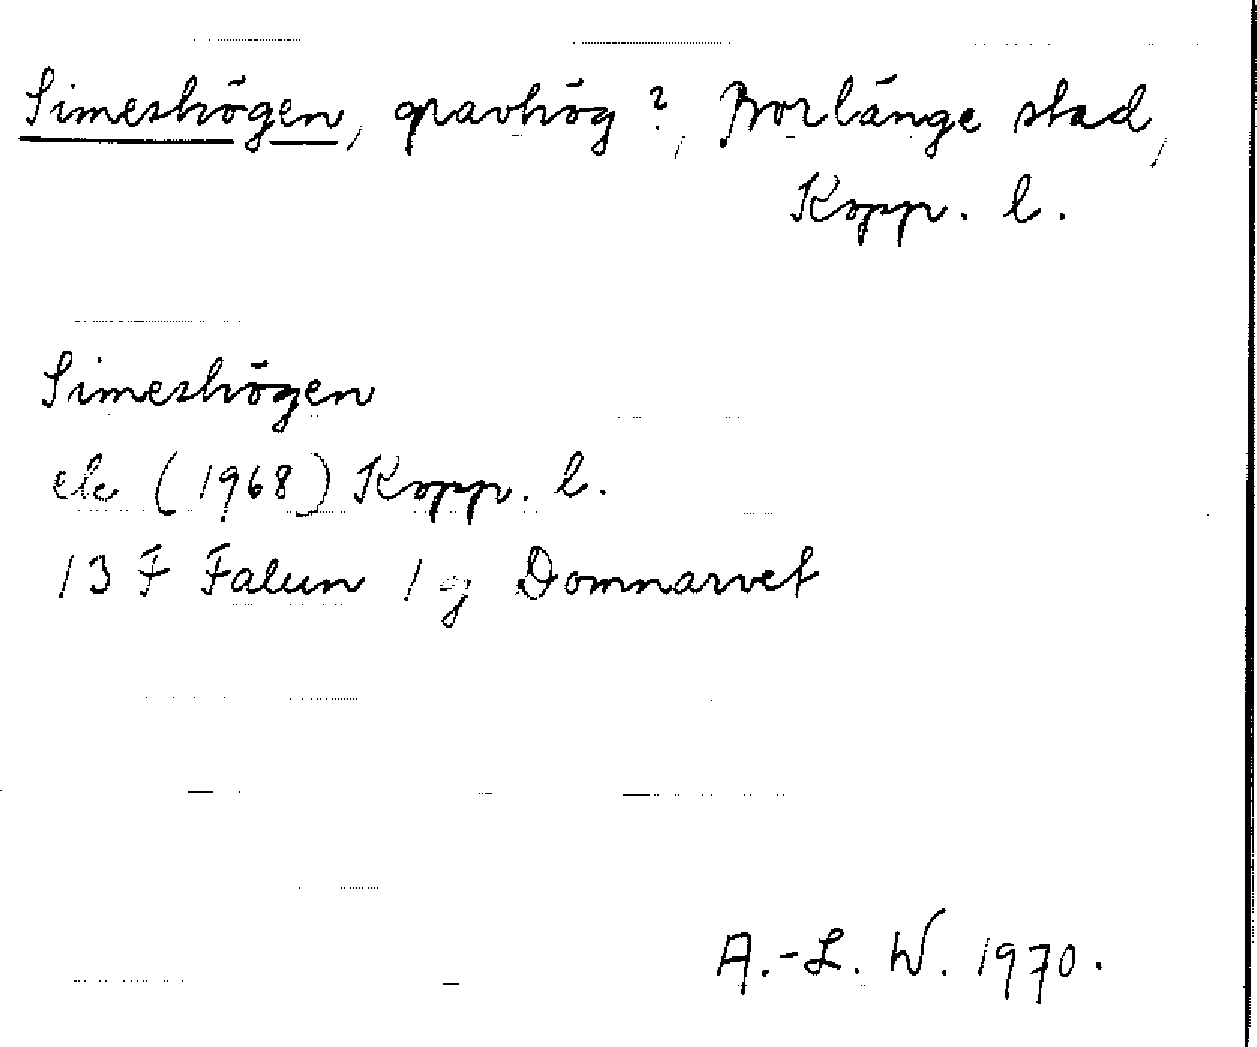 Simeshögen, gravhög?, Borlänge stad,
Kopp. l.
Simeshögen
ek (1968) Kopp. l.
13 F Falun 1 g Domnarvet
A.-L. W. 1970.